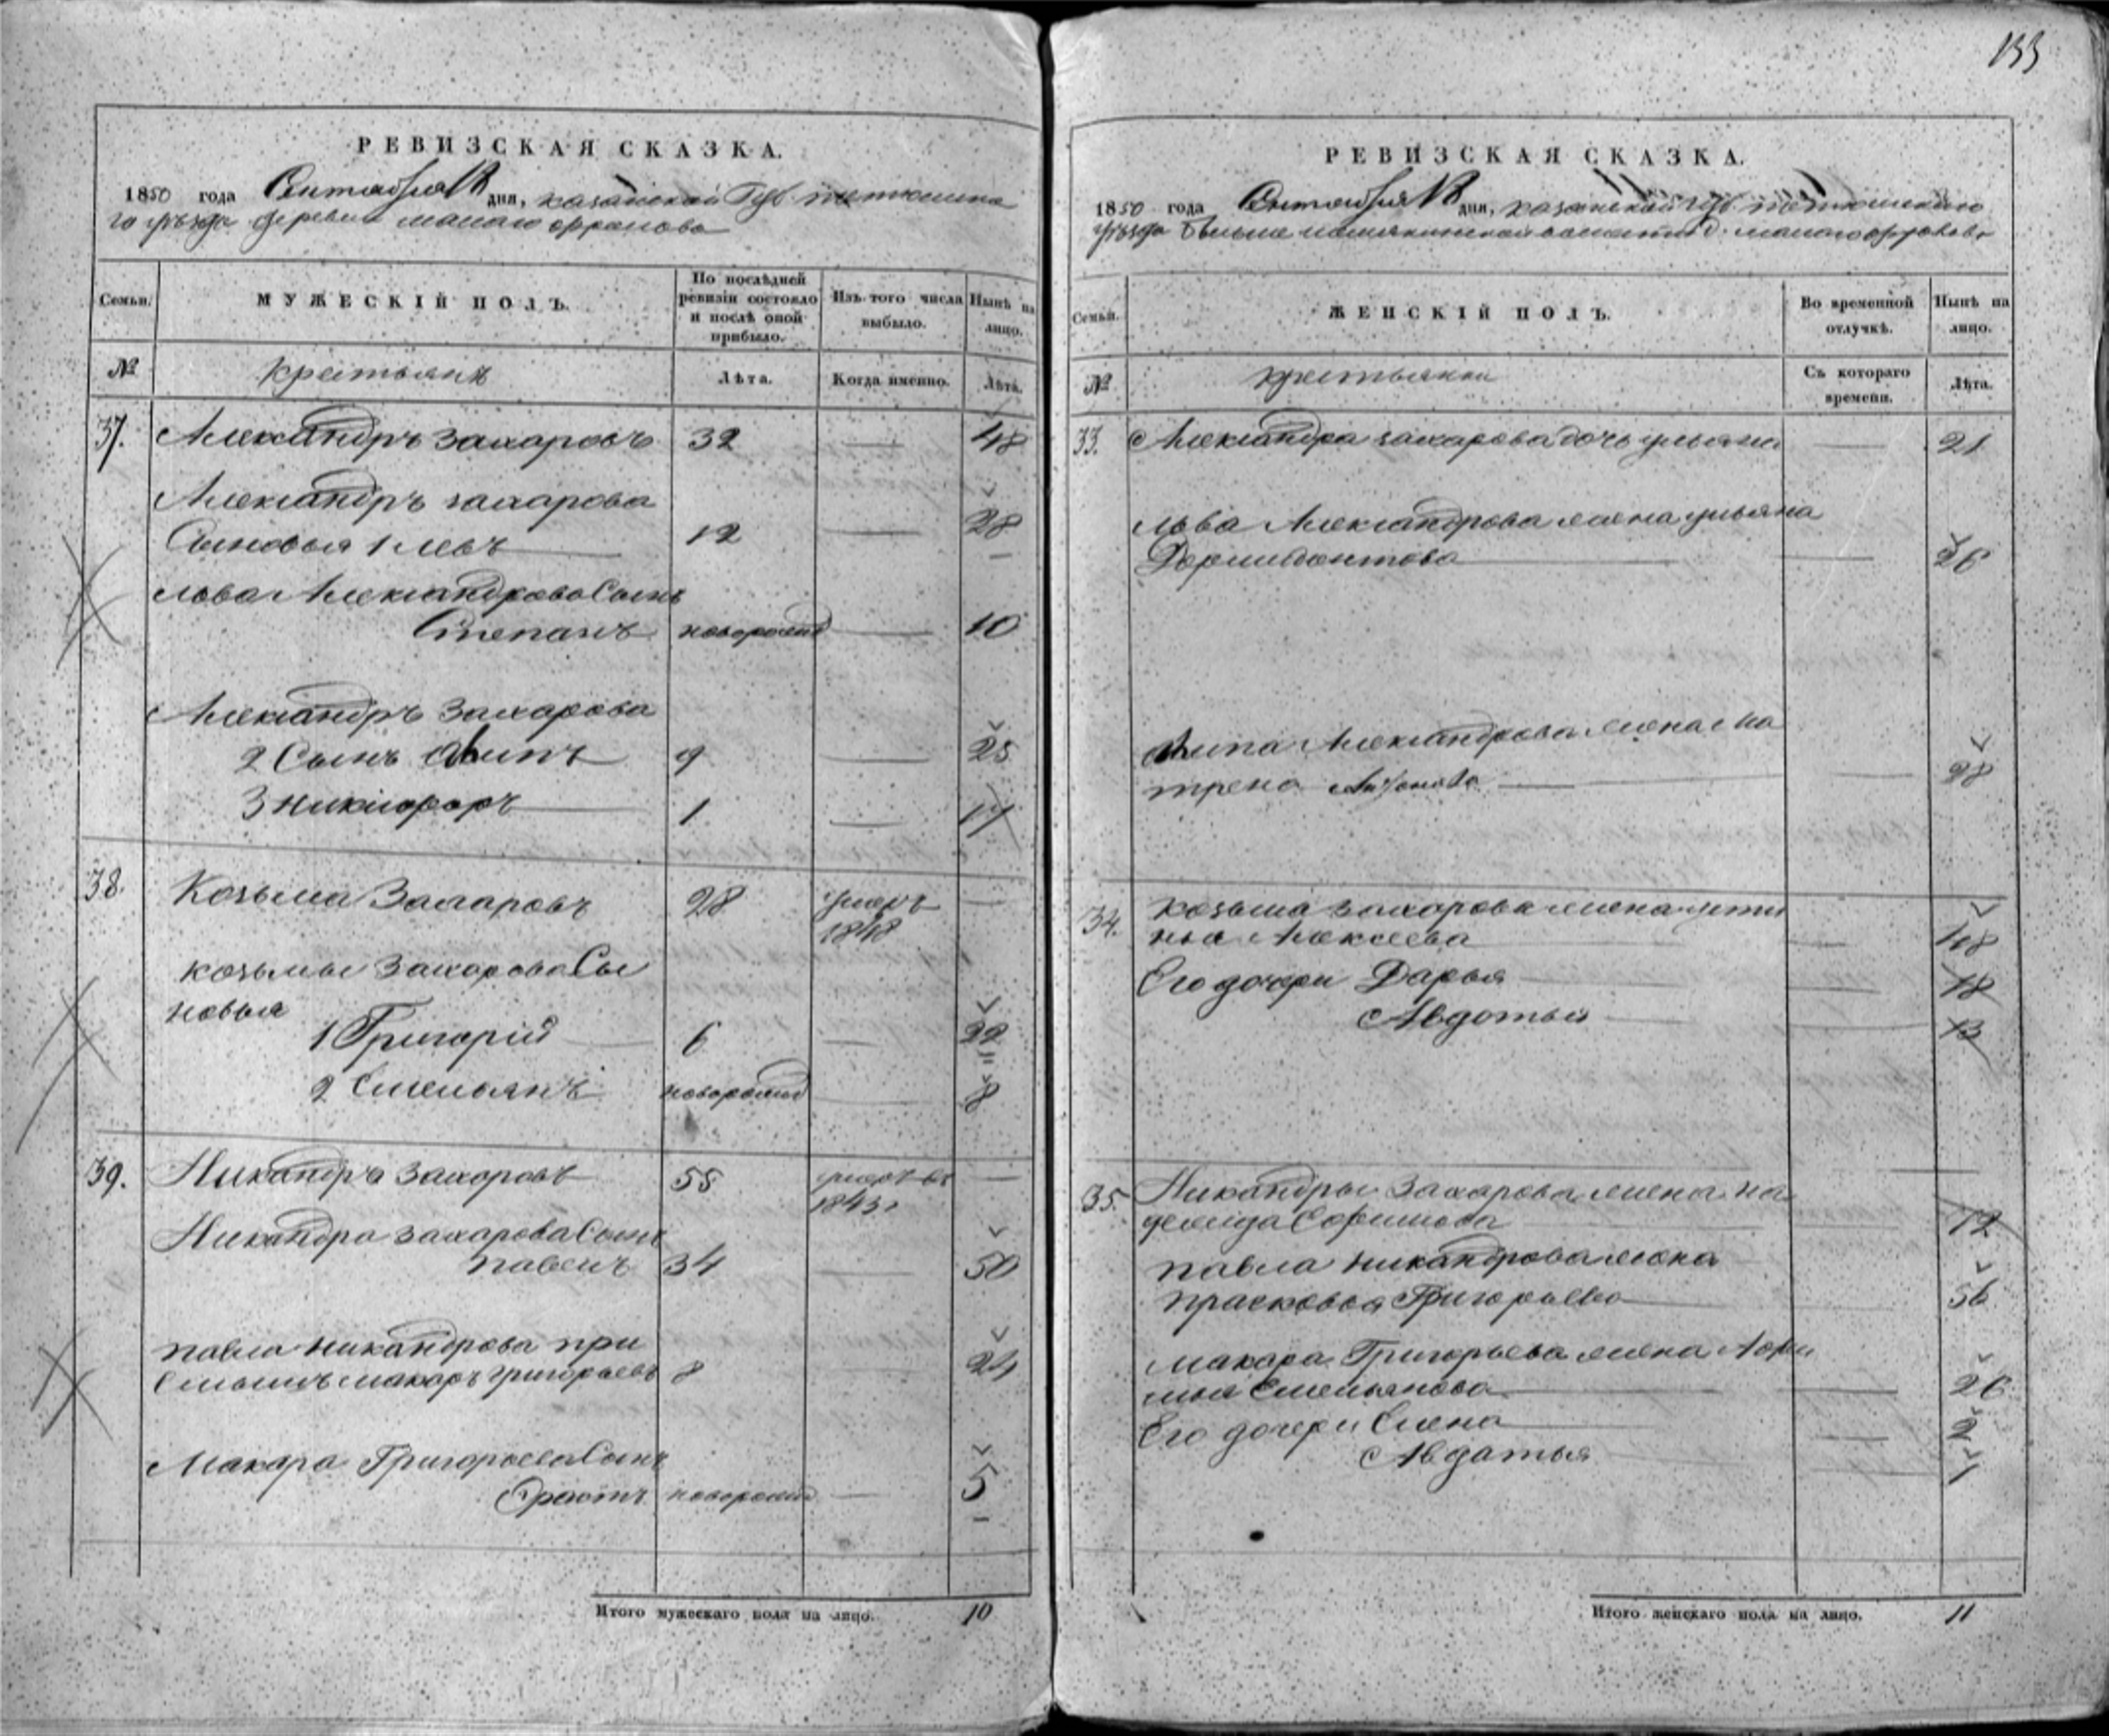 133
РЕВИЗСКАЯ СКАЗКА.
1850 года Сентября 18 дня, казанской Губ. тетюшска
го уѣзда деревни малаго
МУЖЕСКІЙ ПОЛЪ.
Семьи.
По послѣдней ревизіи состояло и послѣ оной прибыло.
Изъ того числа выбыло.
Нынѣ на лицо.
№ крестьянъ Лѣта. Когда именно. Лѣта.
37. Александръ Захаровъ 32 — 48
Александръ захарова
Сыновья 1 левъ 12 — 28
льва Александрова Сынъ
Степанъ новорожд — 10
Александръ Захарова
2 Сынъ 9 — 25
3 никифоръ 1 — 17
38. Козьма Захаровъ 28 умеръ 1848 —
козьмы Захарова Сы
новья
1 Григорій 6 — 22
2 Емельянъ новорожд — 8
39. Никандръ Захоровъ 55 умеръ въ 1843 г —
Никандра захарова Сынъ
павелъ 34 — 50
павла никандрова при
емышъ макаръ григорьевъ 8 24
Макара Григорьева Сынъ
новорожд — 5
Итого мужескаго пола на лицо. 10
РЕВИЗСКАЯ СКАЗКА.
1850 года Сентября 18 дня, казанской губ. тетюшскаго
уѣзда волости д. малаго
Семьи.
ЖЕНСКІЙ ПОЛЪ.
Во временной отлучкѣ.
Нынѣ на лицо.
№ крестьянки Съ котораго времени. Лѣта.
33. Александра захарова дочь ульяна — 21
льва Александрова жена ульяна
Дормидонтова — 26
Александрова жена Ма
трена Антонова — 28
34. козьма захарова жена усти
нья Алексеева — 48
Его дочери Дарья — 18
Авдотья — 13
35. Никандры Захарова жена На
дежда Ефимова 72
павла никандрова жена
прасковья Григорьева 56
Макара Григорьева жена
Емельянова — 26
Его дочери Елена — 2
Авдатья — 1
Итого женскаго пола на лицо. 11